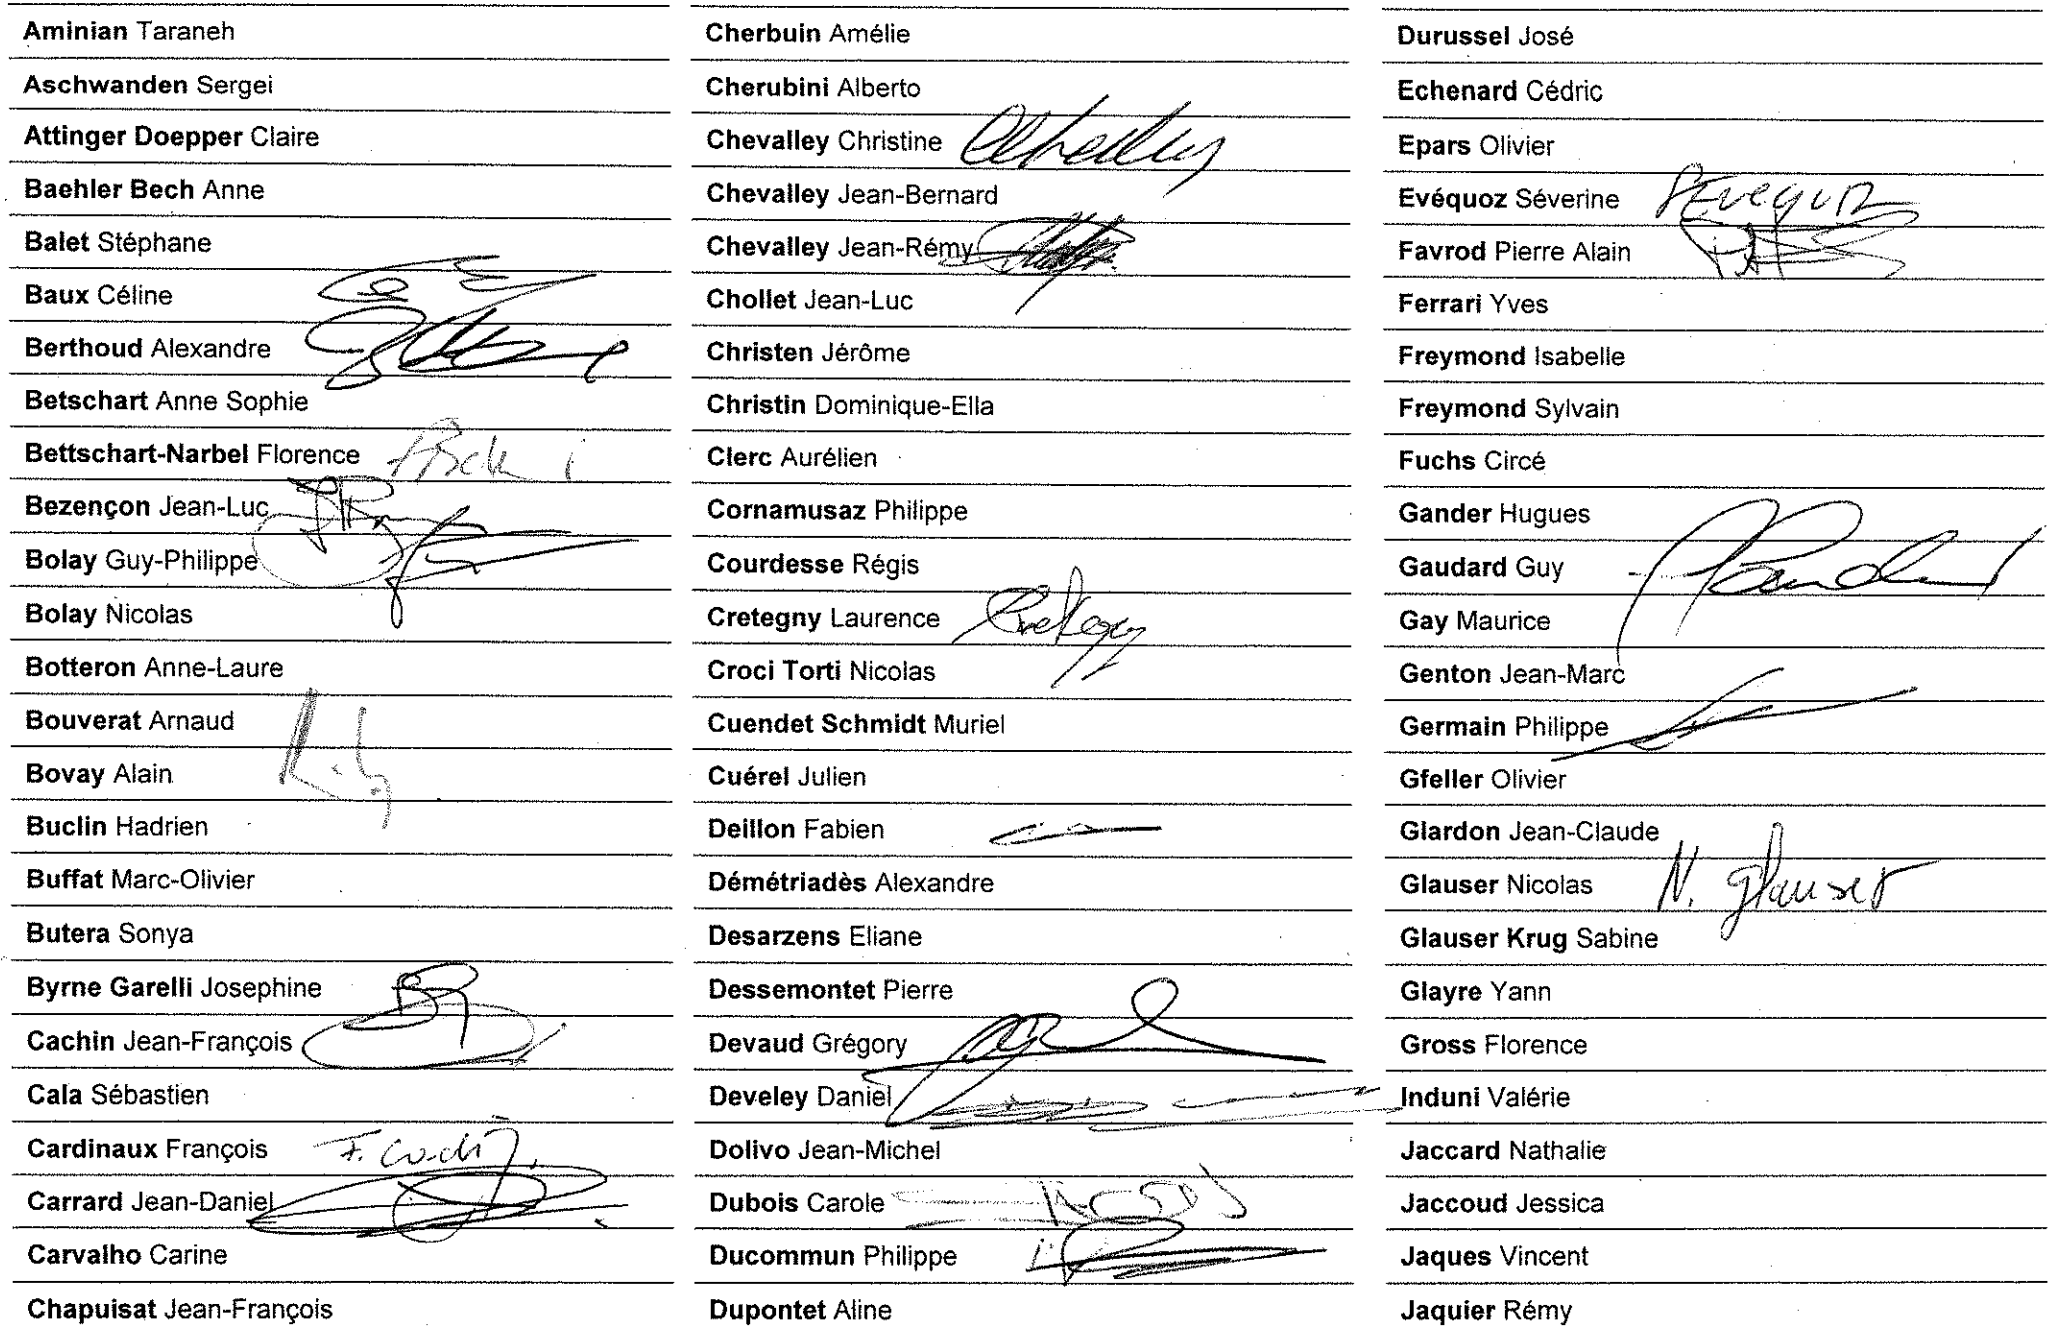 Aminian Taraneh
Aschwanden Sergei
Attinger Doepper Claire
Baehler Bech Anne
Balet Stéphane
Baux Céline
Berthoud Alexandre
Betschart Anne Sophie
Bettschart-Narbel Florence
Bezençon Jean-Luc
Bolay Guy-Philippe
Bolay Nicolas
Botteron Anne-Laure
Bouverat Arnaud
Bovay Alain
Buclin Hadrien
Buffat Marc-Olivier
Butera Sonya
Byrne Garelli Josephine
Cachin Jean-François
Cala Sébastien
Cardinaux François
Carrard Jean-Daniel
Carvalho Carine
Chapuisat Jean-François
Cherbuin Amélie
Cherubini Alberto
Chevalley Christine
Chevalley Jean-Bernard
Chevalley Jean-Rémy
Chollet Jean-Luc
Christen Jérôme
Christin Dominique-Ella
Clerc Aurélien
Cornamusaz Philippe
Courdesse Régis
Cretegny Laurence Cretegny
Croci Torti Nicolas
Cuendet Schmidt Muriel
Cuérel Julien
Deillon Fabien
Démétriadès Alexandre
Desarzens Eliane
Dessemontet Pierre
Devaud Grégory
Develey Daniel
Dolivo Jean-Michel
Dubois Carole
Ducommun Philippe
Dupontet Aline
Durussel José
Echenard Cédric
Epars Olivier
Evéquoz Séverine SEvequoz
Favrod Pierre Alain
Ferrari Yves
Freymond Isabelle
Freymond Sylvain
Fuchs Circé
Gander Hugues
Gaudard Guy
Gay Maurice
Genton Jean-Marc
Germain Philippe
Gfeller Olivier
Glardon Jean-Claude
Glauser Nicolas N. Glauser
Glauser Krug Sabine
Glayre Yann
Gross Florence
Induni Valérie
Jaccard Nathalie
Jaccoud Jessica
Jaques Vincent
Jaquier Rémy